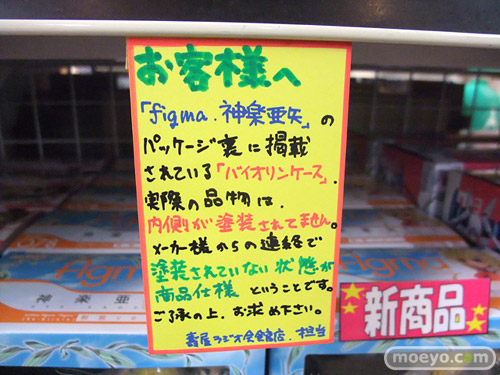 お客様へ
「figma.神楽亜矢」の
パッケージ裏に掲載
されている「バイオリンケース」.
実際の品物は.
内側が塗装されてません。
メーカー様からの連絡で
塗装されていない状態が
商品仕様ということです。
ご了承の上、お求め下さい。
寿屋ラジオ会館店.担当
新商品
figma
神楽亜
figma
moeyo.com